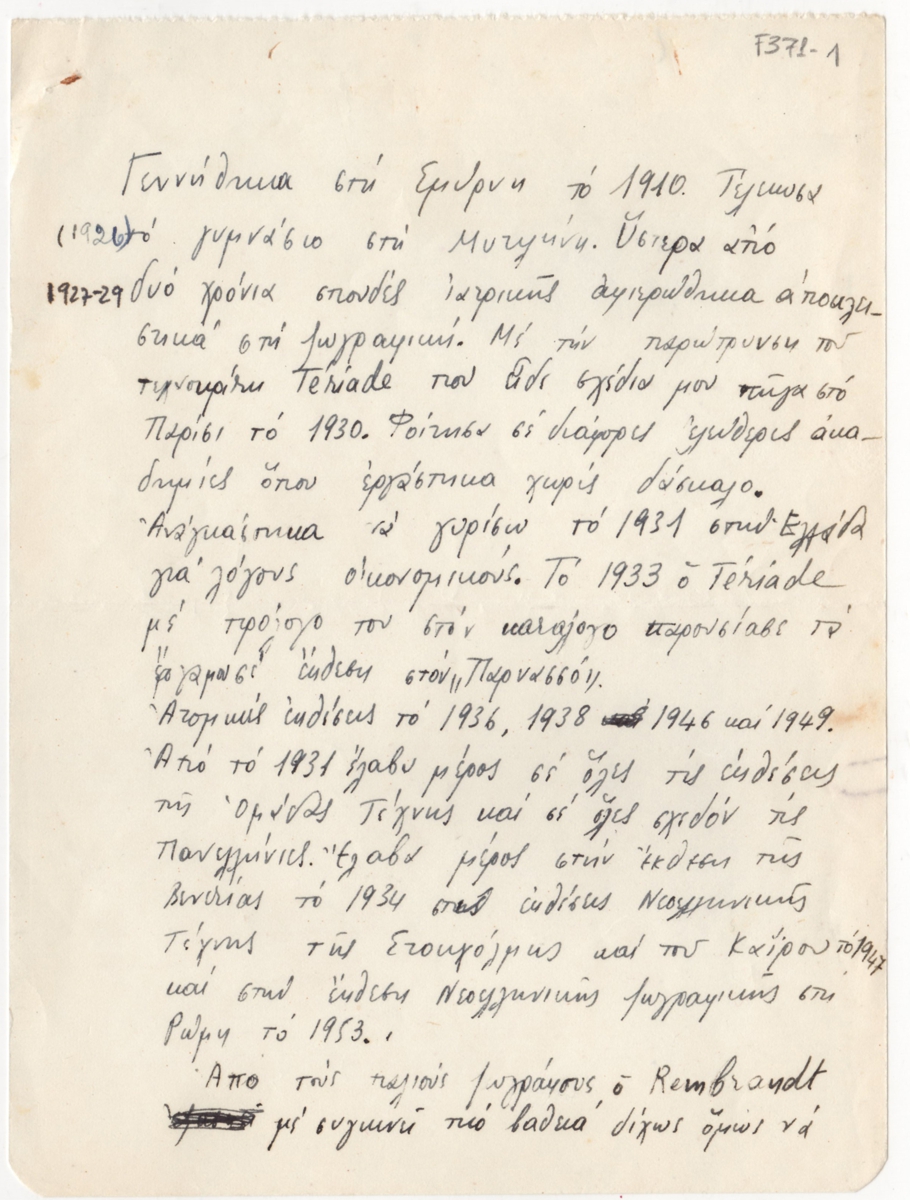 F371-1
Γεννήθηκα στή Σμύρνη τό 1910. Τέλειωσα
(1926) τό γυμνάσιο στή Μυτιλήνη. Ὕστερα ἀπό
1927-29 δυό χρόνια σπουδές ἰατρικῆς ἀφιερώθηκα ἀποκλει-
στικά στή ζωγραφική. Μέ τήν παρώτρυνση τοῦ
τεχνοκρίτη Tériade πού εἶδε σχέδιά μου πῆγα στό
Παρίσι τό 1930. Φοίτησα σέ διάφορες ἐλεύθερες ἀκα-
δημίες ὅπου ἐργάστηκα χωρίς δάσκαλο.
Ἀναγκάστηκα νά γυρίσω τό 1931 στήν Ἑλλάδα
γιά λόγους οἰκονομικούς. Τό 1933 ὁ Tériade
μέ πρόλογό του στόν κατάλογο παρουσίασε τή
ἔκθεση στόν „Παρνασσό".
Ἀτομικές ἐκθέσεις τό 1936, 1938 1946 καί 1949.
Ἀπό τό 1931 ἔλαβα μέρος σέ ὅλες τίς ἐκθέσεις
τῆς Ὁμάδας Τέχνης καί σέ ὅλες σχεδόν τίς
Πανελλήνιες. Ἔλαβα μέρος στήν ἔκθεση τῆς
Βενετίας τό 1934 στίς ἐκθέσεις Νεοελληνικῆς
Τέχνης τῆς Στοκχόλμης καί τοῦ Καΐρου τό 1947
καί στήν ἔκθεση Νεοελληνικῆς ζωγραφικῆς στή
Ρώμη τό 1953.
Ἀπό τούς παλιούς ζωγράφους ὁ Rembrandt
μέ συγκινεῖ πιό βαθειά, δίχως ὅμως νά